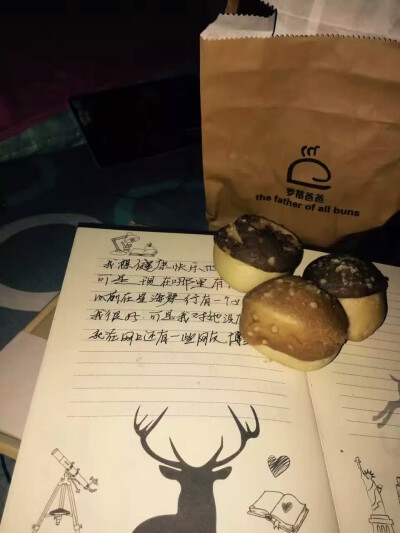 罗爸爸
the father of all buns
我想健康快乐
可是现在哪里有
以前在星海 行有一个
我很好 可是我对她没
在网上还有一些网友